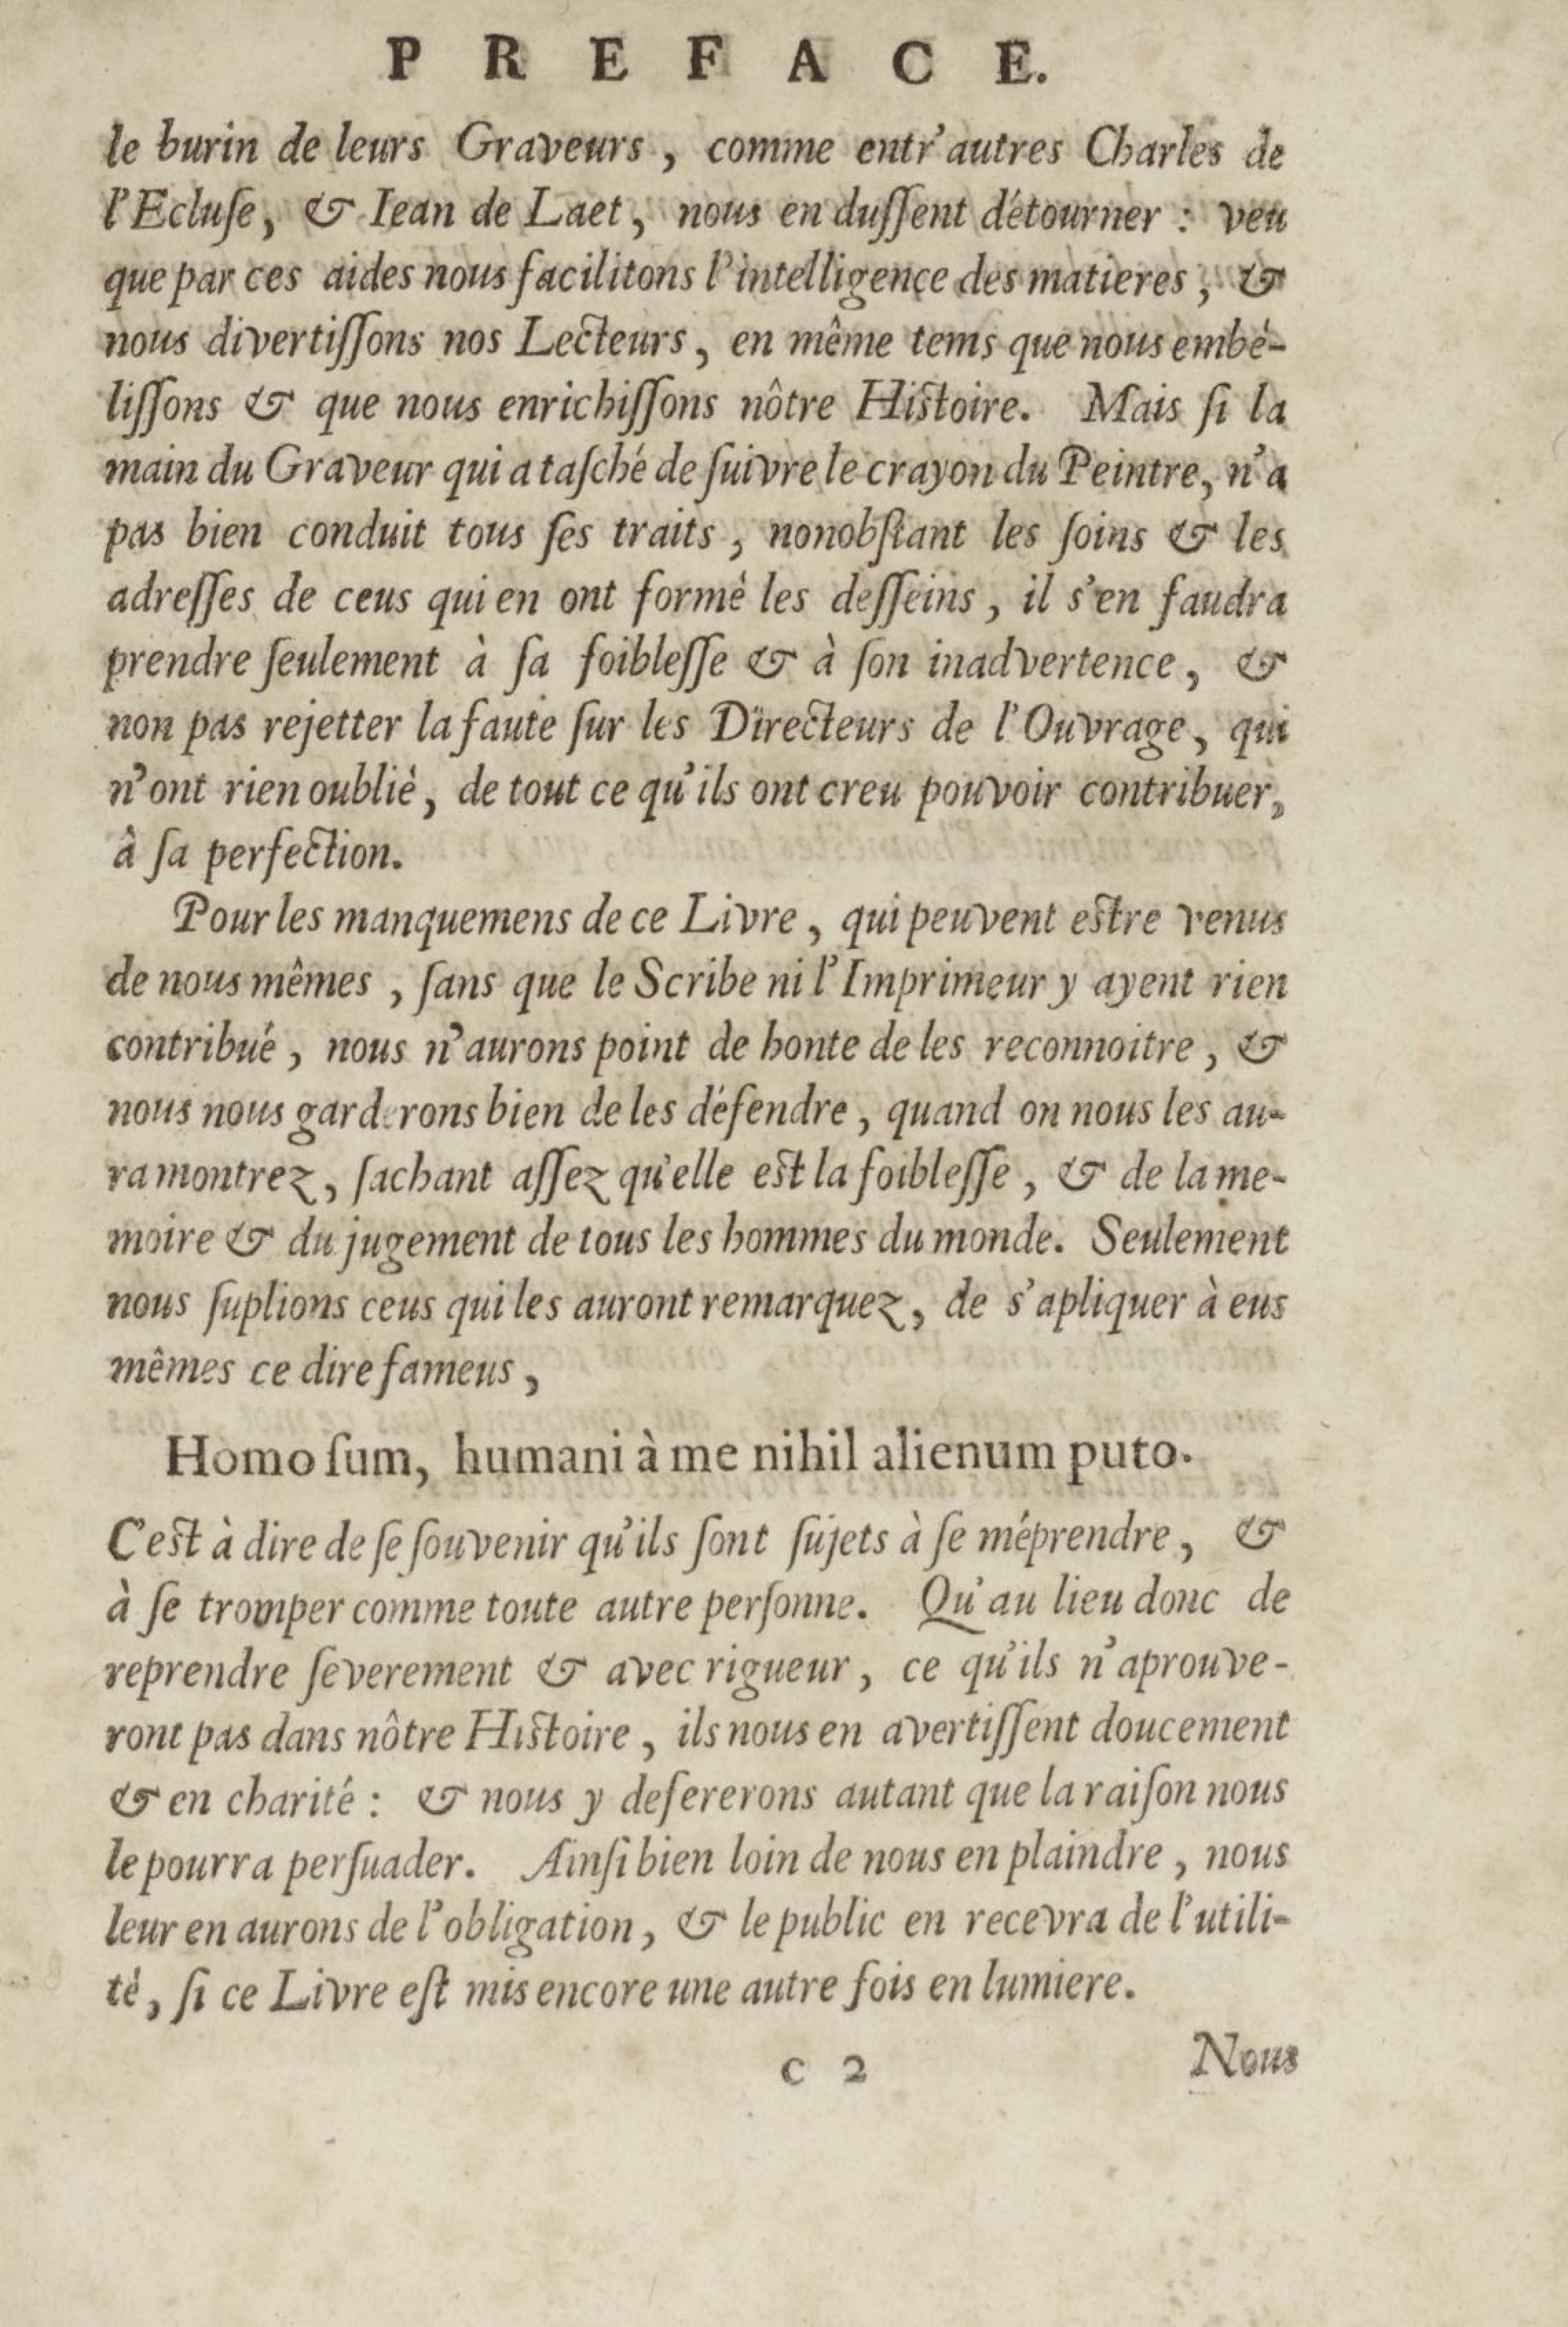 P R E F A C E.
le burin de leurs Graveurs, comme entr'autres Charles de
l'Ecluſe, & Iean de Laet, nous en duſſent détourner : veu
que par ces aides nous facilitons l'intelligence des matieres, &
nous divertiſſons nos Lecteurs, en même tems que nous embé-
liſſons & que nous enrichiſſons nôtre Hiſtoire. Mais ſi la
main du Graveur qui a taſché de ſuivre le crayon du Peintre, n'a
pas bien conduit tous ſes traits, nonobſtant les ſoins & les
adreſſes de ceus qui en ont formé les deſſeins, il s'en faudra
prendre ſeulement à ſa foibleſſe & à ſon inadvertence, &
non pas rejetter la faute ſur les Directeurs de l'Ouvrage, qui
n'ont rien oublié, de tout ce qu'ils ont creu pouvoir contribuer,
â ſa perfection.
Pour les manquemens de ce Livre, qui peuvent eſtre venus
de nous mêmes, ſans que le Scribe ni l'Imprimeur y ayent rien
contribué, nous n'aurons point de honte de les reconnoitre, &
nous nous garderons bien de les défendre, quand on nous les au-
ra montrez, ſachant aſſez qu'elle eſt la foibleſſe, & de la me-
moire & du jugement de tous les hommes du monde. Seulement
nous ſuplions ceus qui les auront remarquez, de s'apliquer à eus
mêmes ce dire fameus,
Homo ſum, humani à me nihil alienum puto.
C'eſt à dire de ſe ſouvenir qu'ils ſont ſujets à ſe méprendre, &
à ſe tromper comme toute autre perſonne. Qu'au lieu donc de
reprendre ſeverement & avec rigueur, ce qu'ils n'aprouve-
ront pas dans nôtre Hiſtoire, ils nous en avertiſſent doucement
& en charité : & nous y defererons autant que la raiſon nous
le pourra perſuader. Ainſi bien loin de nous en plaindre, nous
leur en aurons de l'obligation, & le public en recevra de l'utili-
té, ſi ce Livre eſt mis encore une autre fois en lumiere.
c 2 Nous